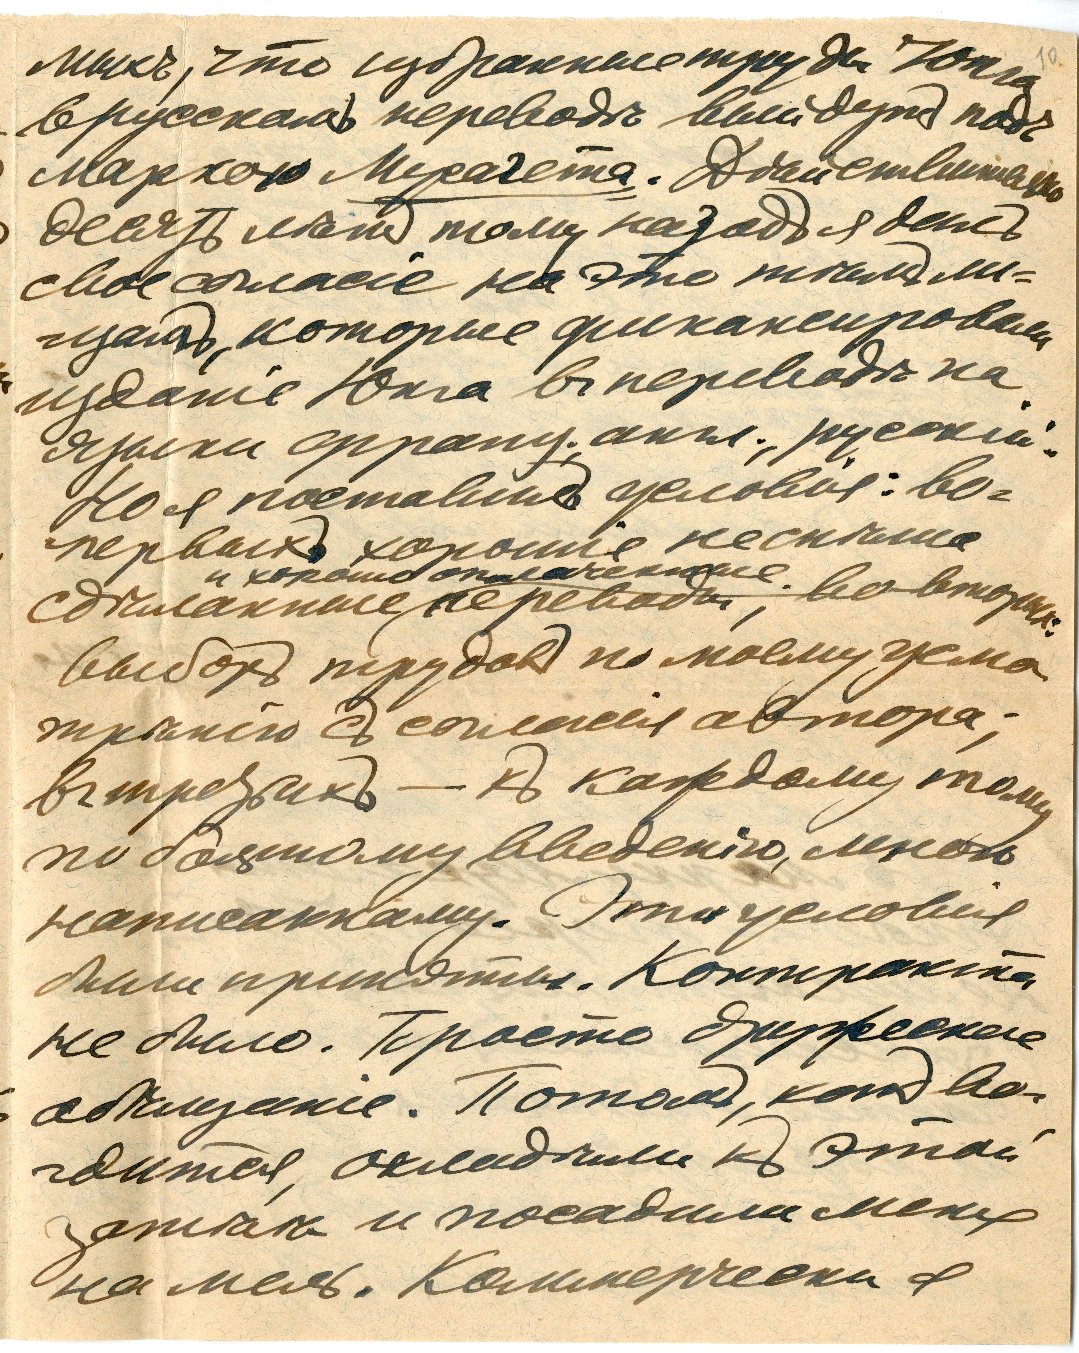 мыхъ, что избранные труды Юнга
10
в русскомъ переводѣ выйдутъ подъ
маркою Мусагета. Дѣйствительно
десять лѣтъ тому назадъ я далъ
свое согласіе на это тѣмъ ли-
цамъ, которые финансировали
изданіе Юнга въ переводѣ на
языки франц., англ., русскій.
Но я поставилъ условія: во-
первыхъ хорошіе неспѣшно
и хорошо оплаченные
сдѣланные переводы; во-вторыхъ:
выборъ трудовъ по моему усмо
трѣнію съ согласія автора;
въ третьихъ — къ каждому тому
по большому введенію, мною
написанному. Эти условія
были приняты. Контракта
не было. Просто дружеское
обѣщаніе. Потомъ, какъ во-
дится, охладѣли къ этой
затѣѣ и посадили меня
на мель. Коммерчески я